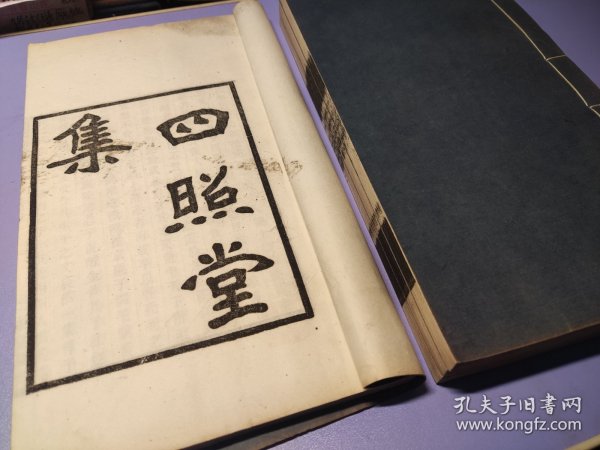 四照堂
集
孔夫子旧书网
www.kongfz.com